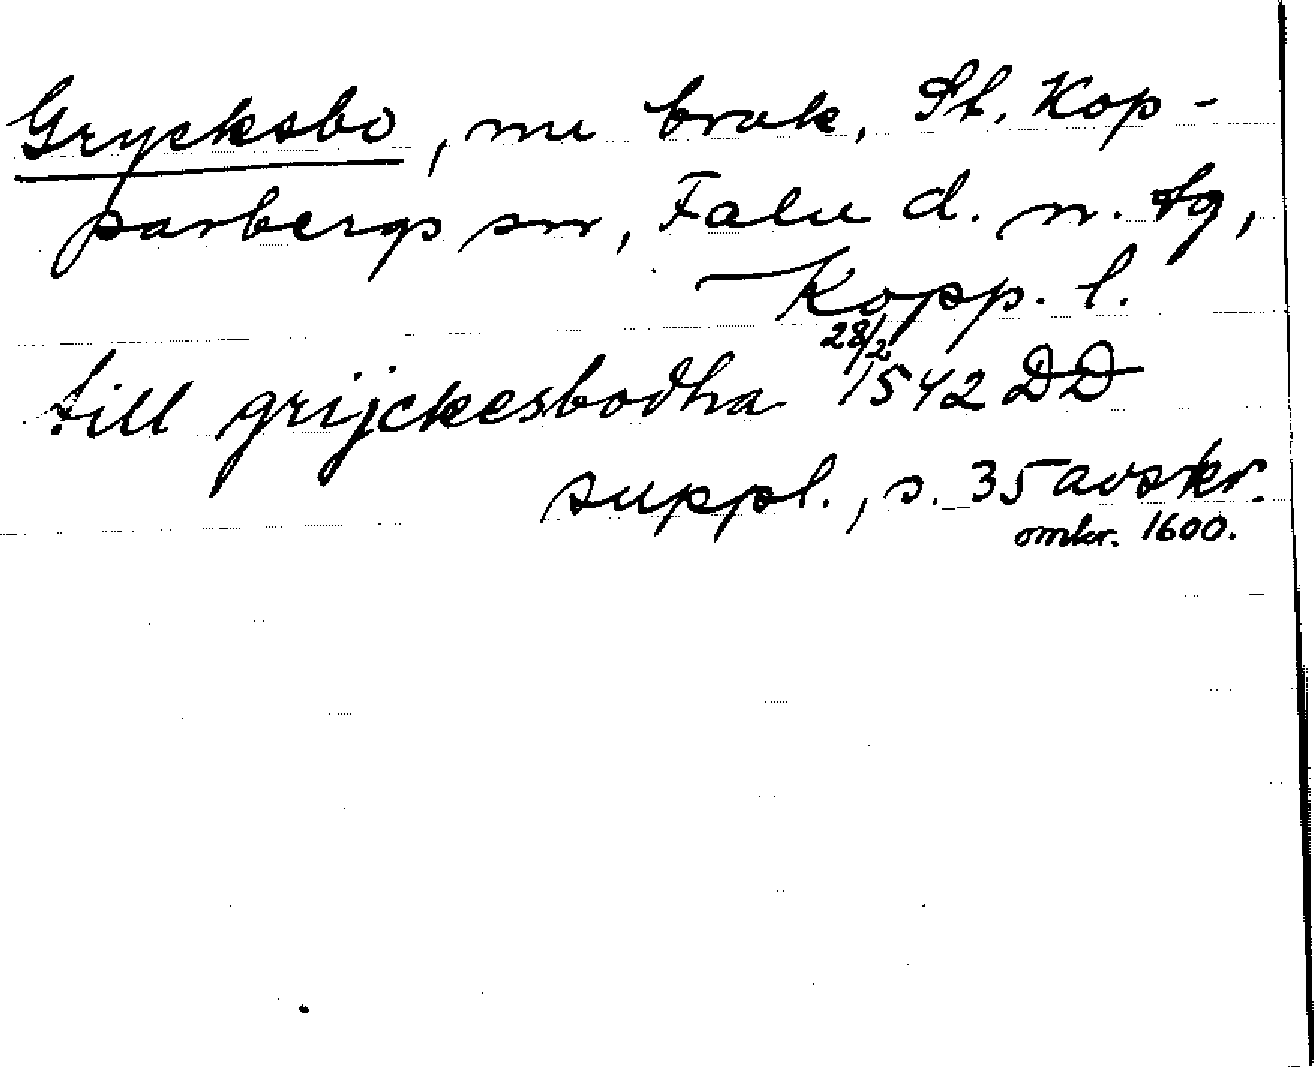 Grycksbo, nu bruk, St. Kop-
parbergs sn, Falu d. n. tg,
Kopp. l.
till grijckesbodha 28/2 1542 DD
suppl., s. 35 avskr.
omkr. 1600.